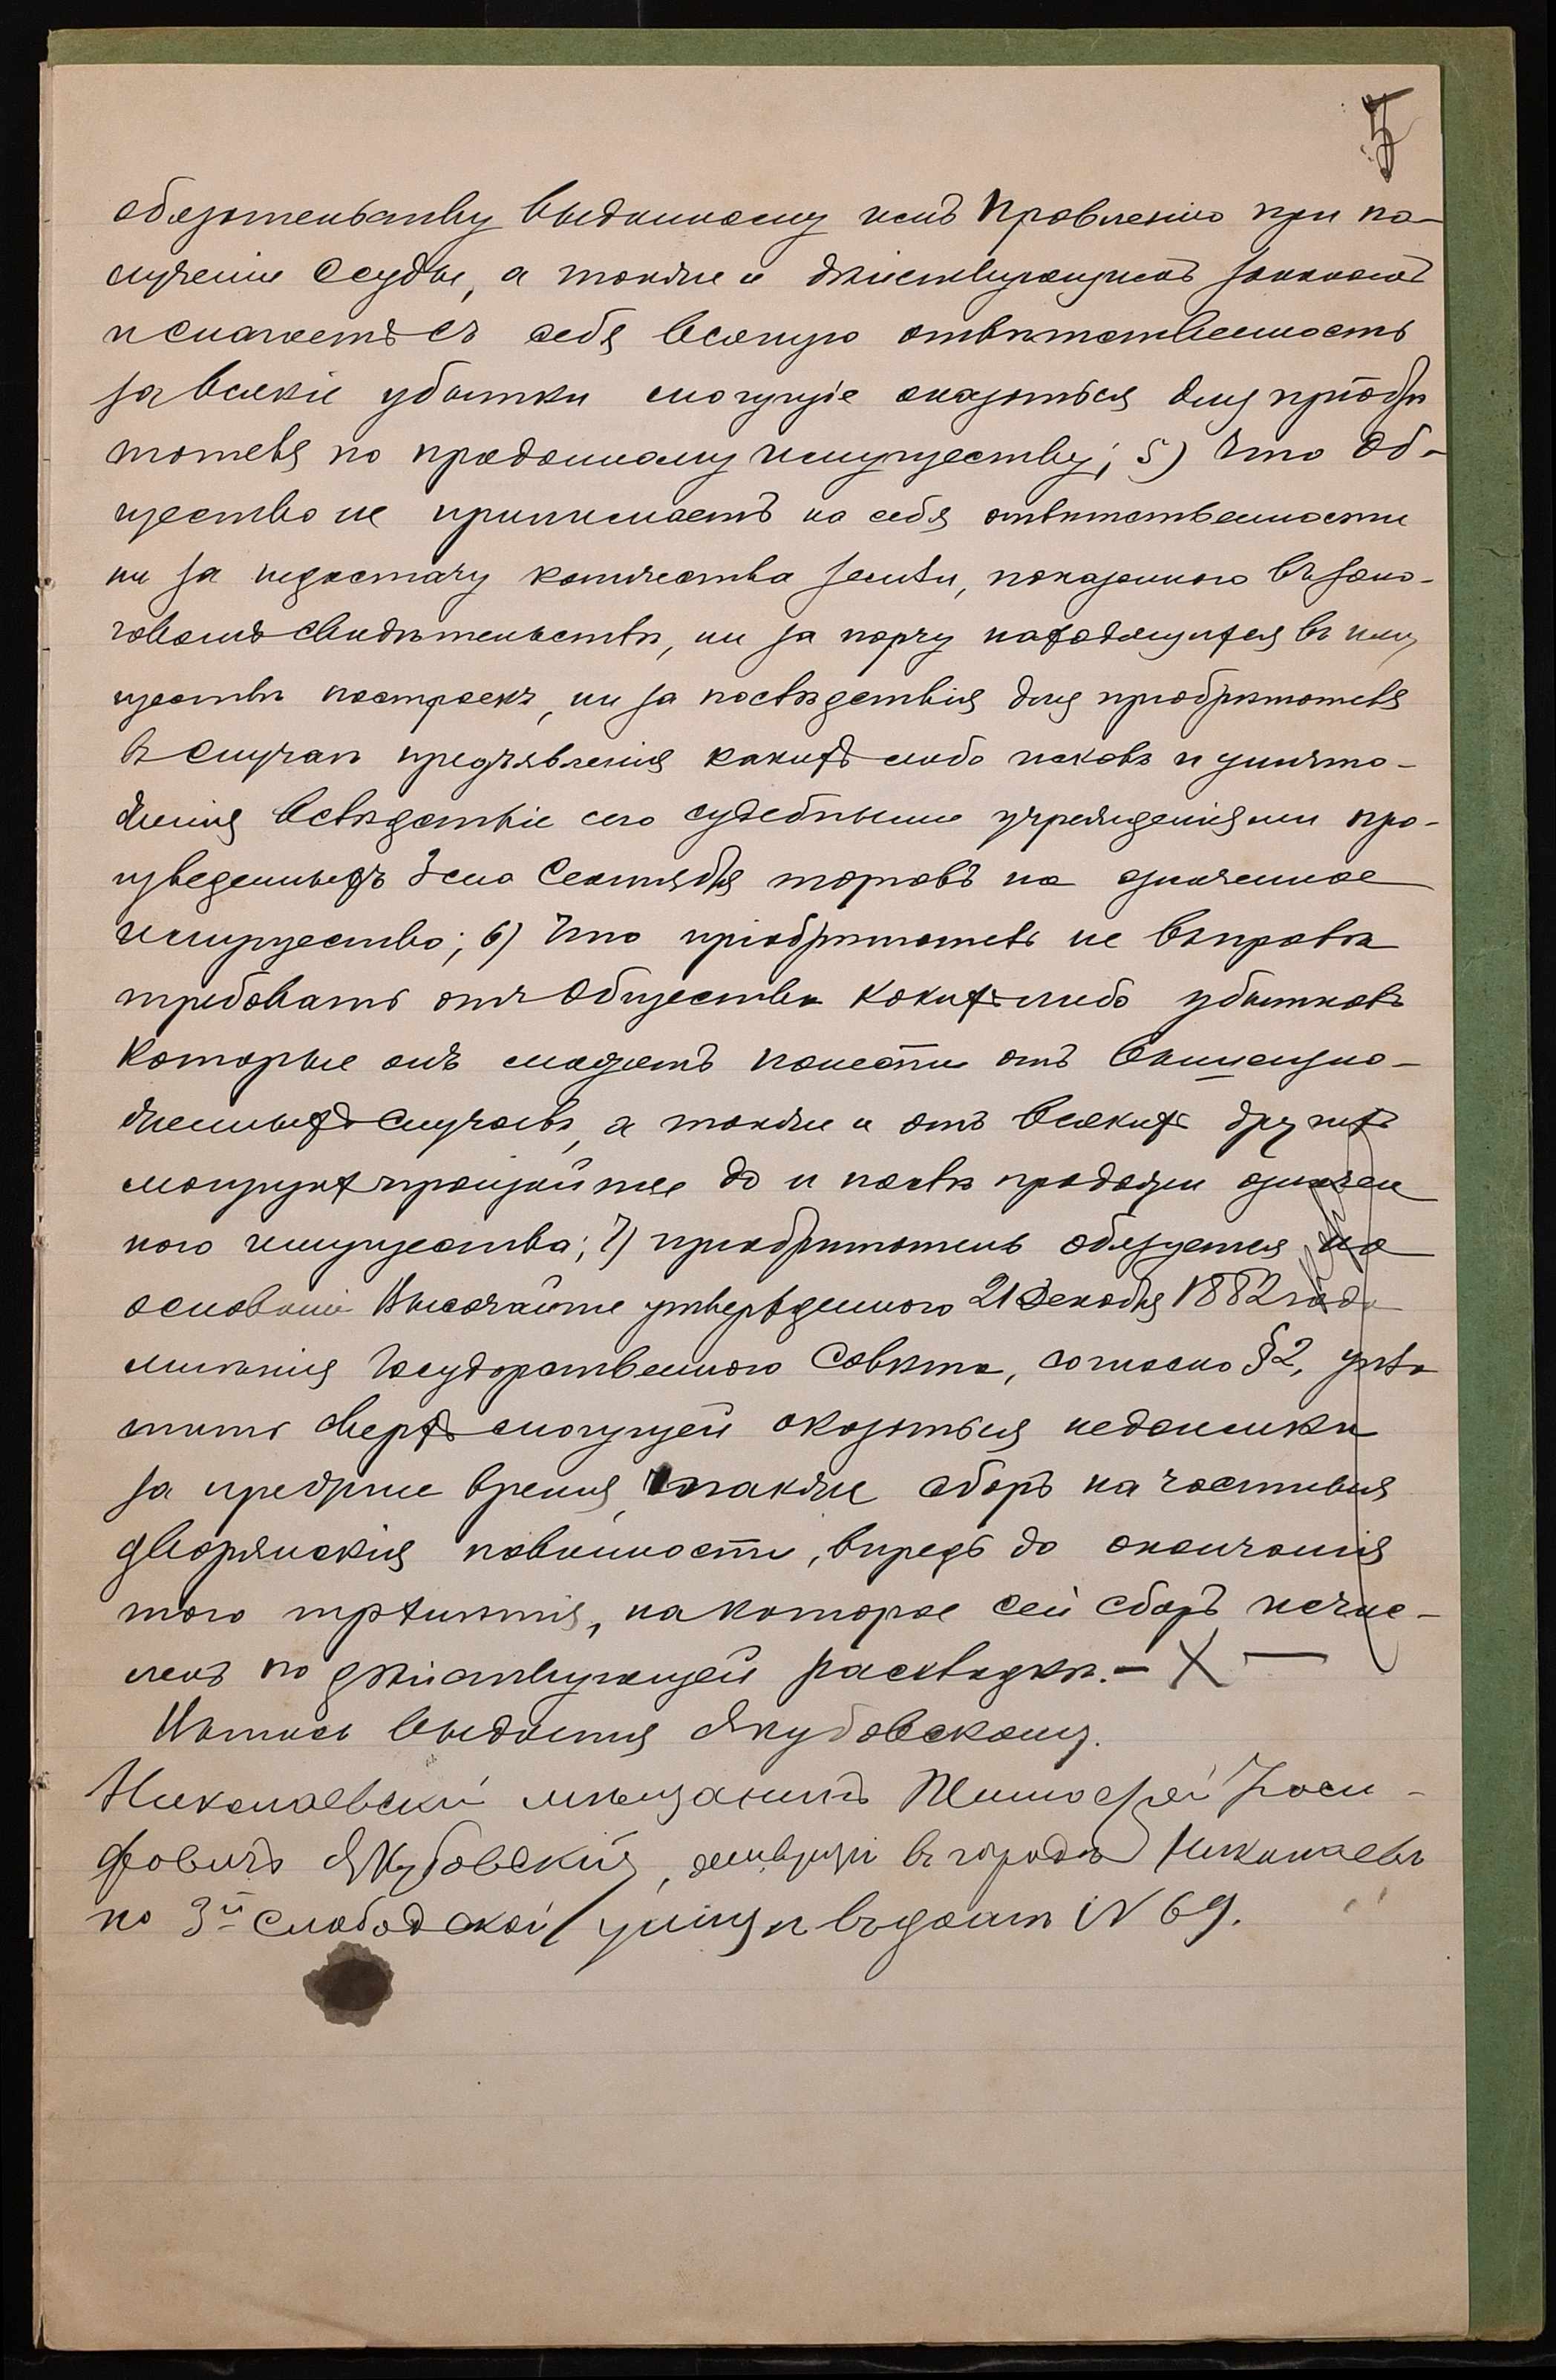 5
обязательству выданному имъ Правленію при по-
лученіи ссуды, а также и дѣйствующимъ законамъ
и слагаетъ съ себя всякую отвѣтственность
за всякіе убытки могущіе оказаться для пріобрѣ
тателя по проданному имуществу; 5) Что Об-
щество не принимаетъ на себя отвѣтственности
ни за недостачу количества земли, показанного въ зало-
говомъ свидѣтельствѣ, ни за порчу находящихся въ иму
ществѣ построекъ, ни за послѣдствія для пріобрѣтателя
въ случаѣ предъявленія какихъ либо исковъ и уничто-
женія вслѣдствіе сего судебными учрежденіями про-
изведенныхъ 3сго Сентября торговъ на означенное
имущество; 6) Что пріобрѣтатель не въ правѣ
требовать отъ Общества какихъ либо убытковъ
которые онъ можетъ понести отъ вышеизло-
женныхъ случаевъ, а также и отъ всякихъ другихъ
могущихъ произойти до и послѣ продажи означен
ного имущества; 7) пріобрѣтатель обязуется на
основаніи Высочайше утвержденного 21 Декабря 1882 года
мнѣнія Государственного Совѣта, согласно §2, упла
тить сверхъ могущей оказаться недоимки
за прежнее время, также сборъ на частныя
дворянскія повинности, впредь до окончанія
того трехлѣтія, на которое сей сборъ исчис-
ленъ по дѣйствующей раскладкѣ. – X —
Копись выдается Якубовскому.
Николаевскій мѣщанинъ Тимофей Іоси-
фовичъ Якубовскій, живущій въ городѣ Николаевѣ
по 3й Слободской улицѣ въ домѣ № 69.